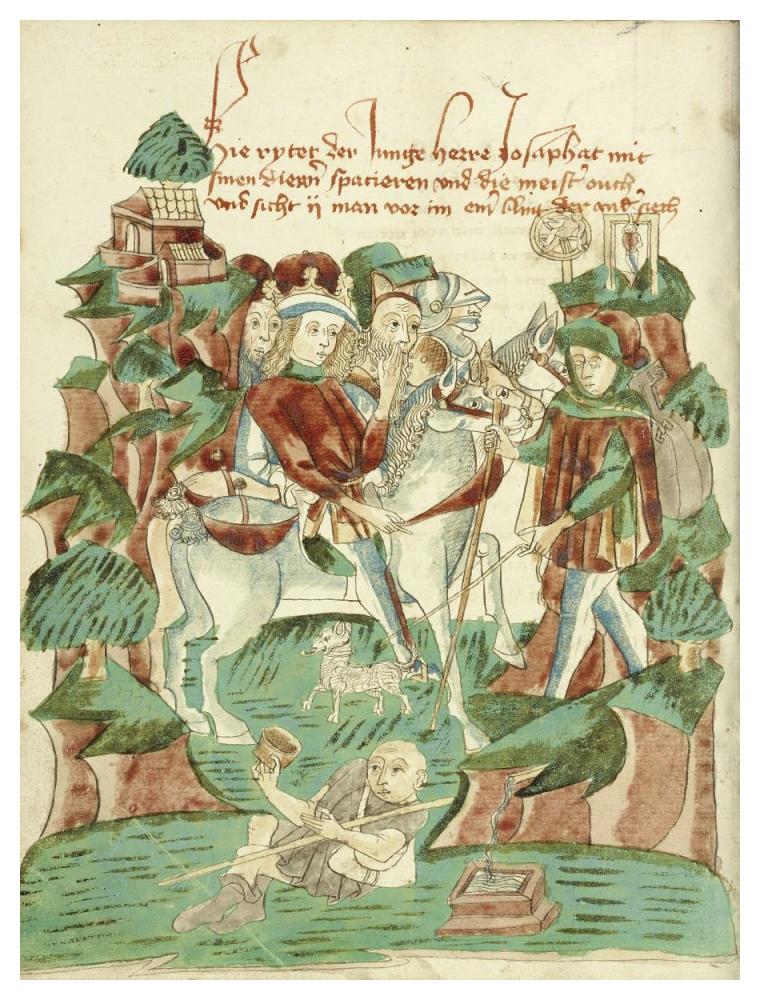 Hie rytet der Junge herre Josaphat mit
sinen dienern spacieren und die meist ouch
und sicht ij man vor im ein blint der and siech